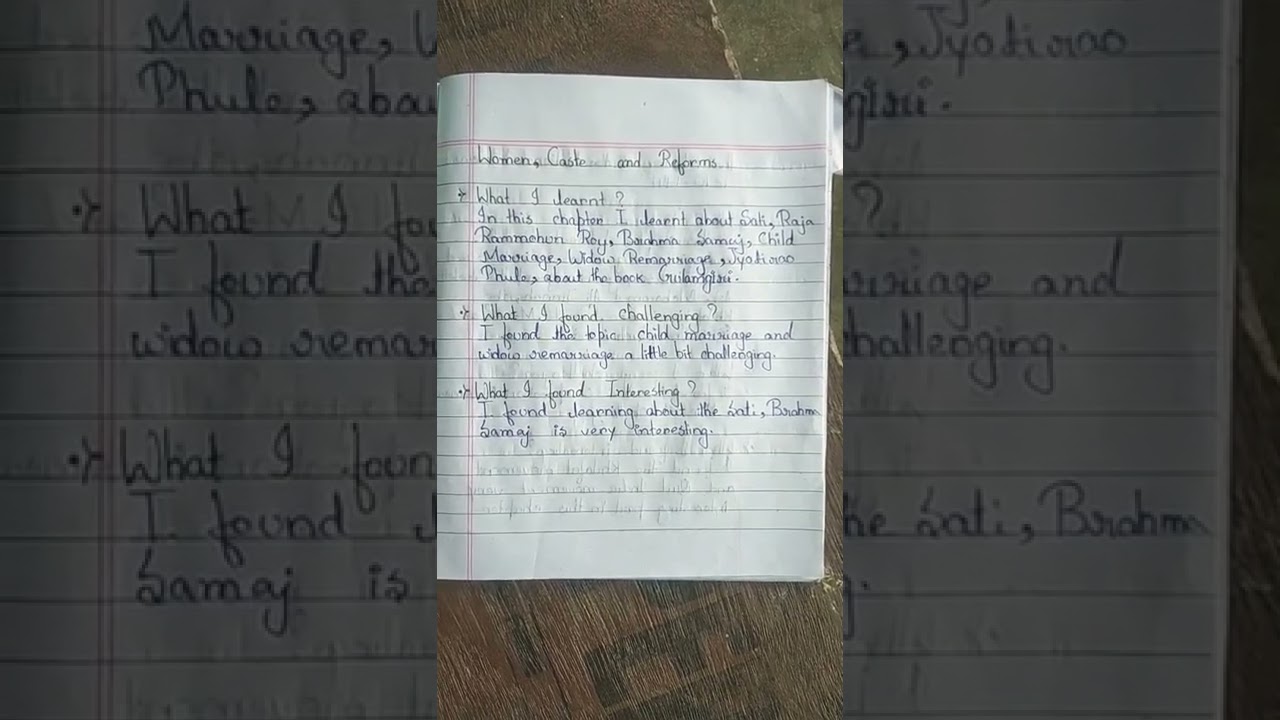 Women, Caste and Reforms
What I learnt ?
In this chapter I learnt about Sati, Raja
Rammohun Roy, Brahma Samaj, Child
Marriage, Widow Remarriage, Jyotirao
Phule, about the book Gulamgiri.
What I found challenging ?
I found the topic child marriage and
widow remarriage a little bit challenging.
What I found Interesting ?
I found learning about the Sati, Brahm
Samaj is very interesting.